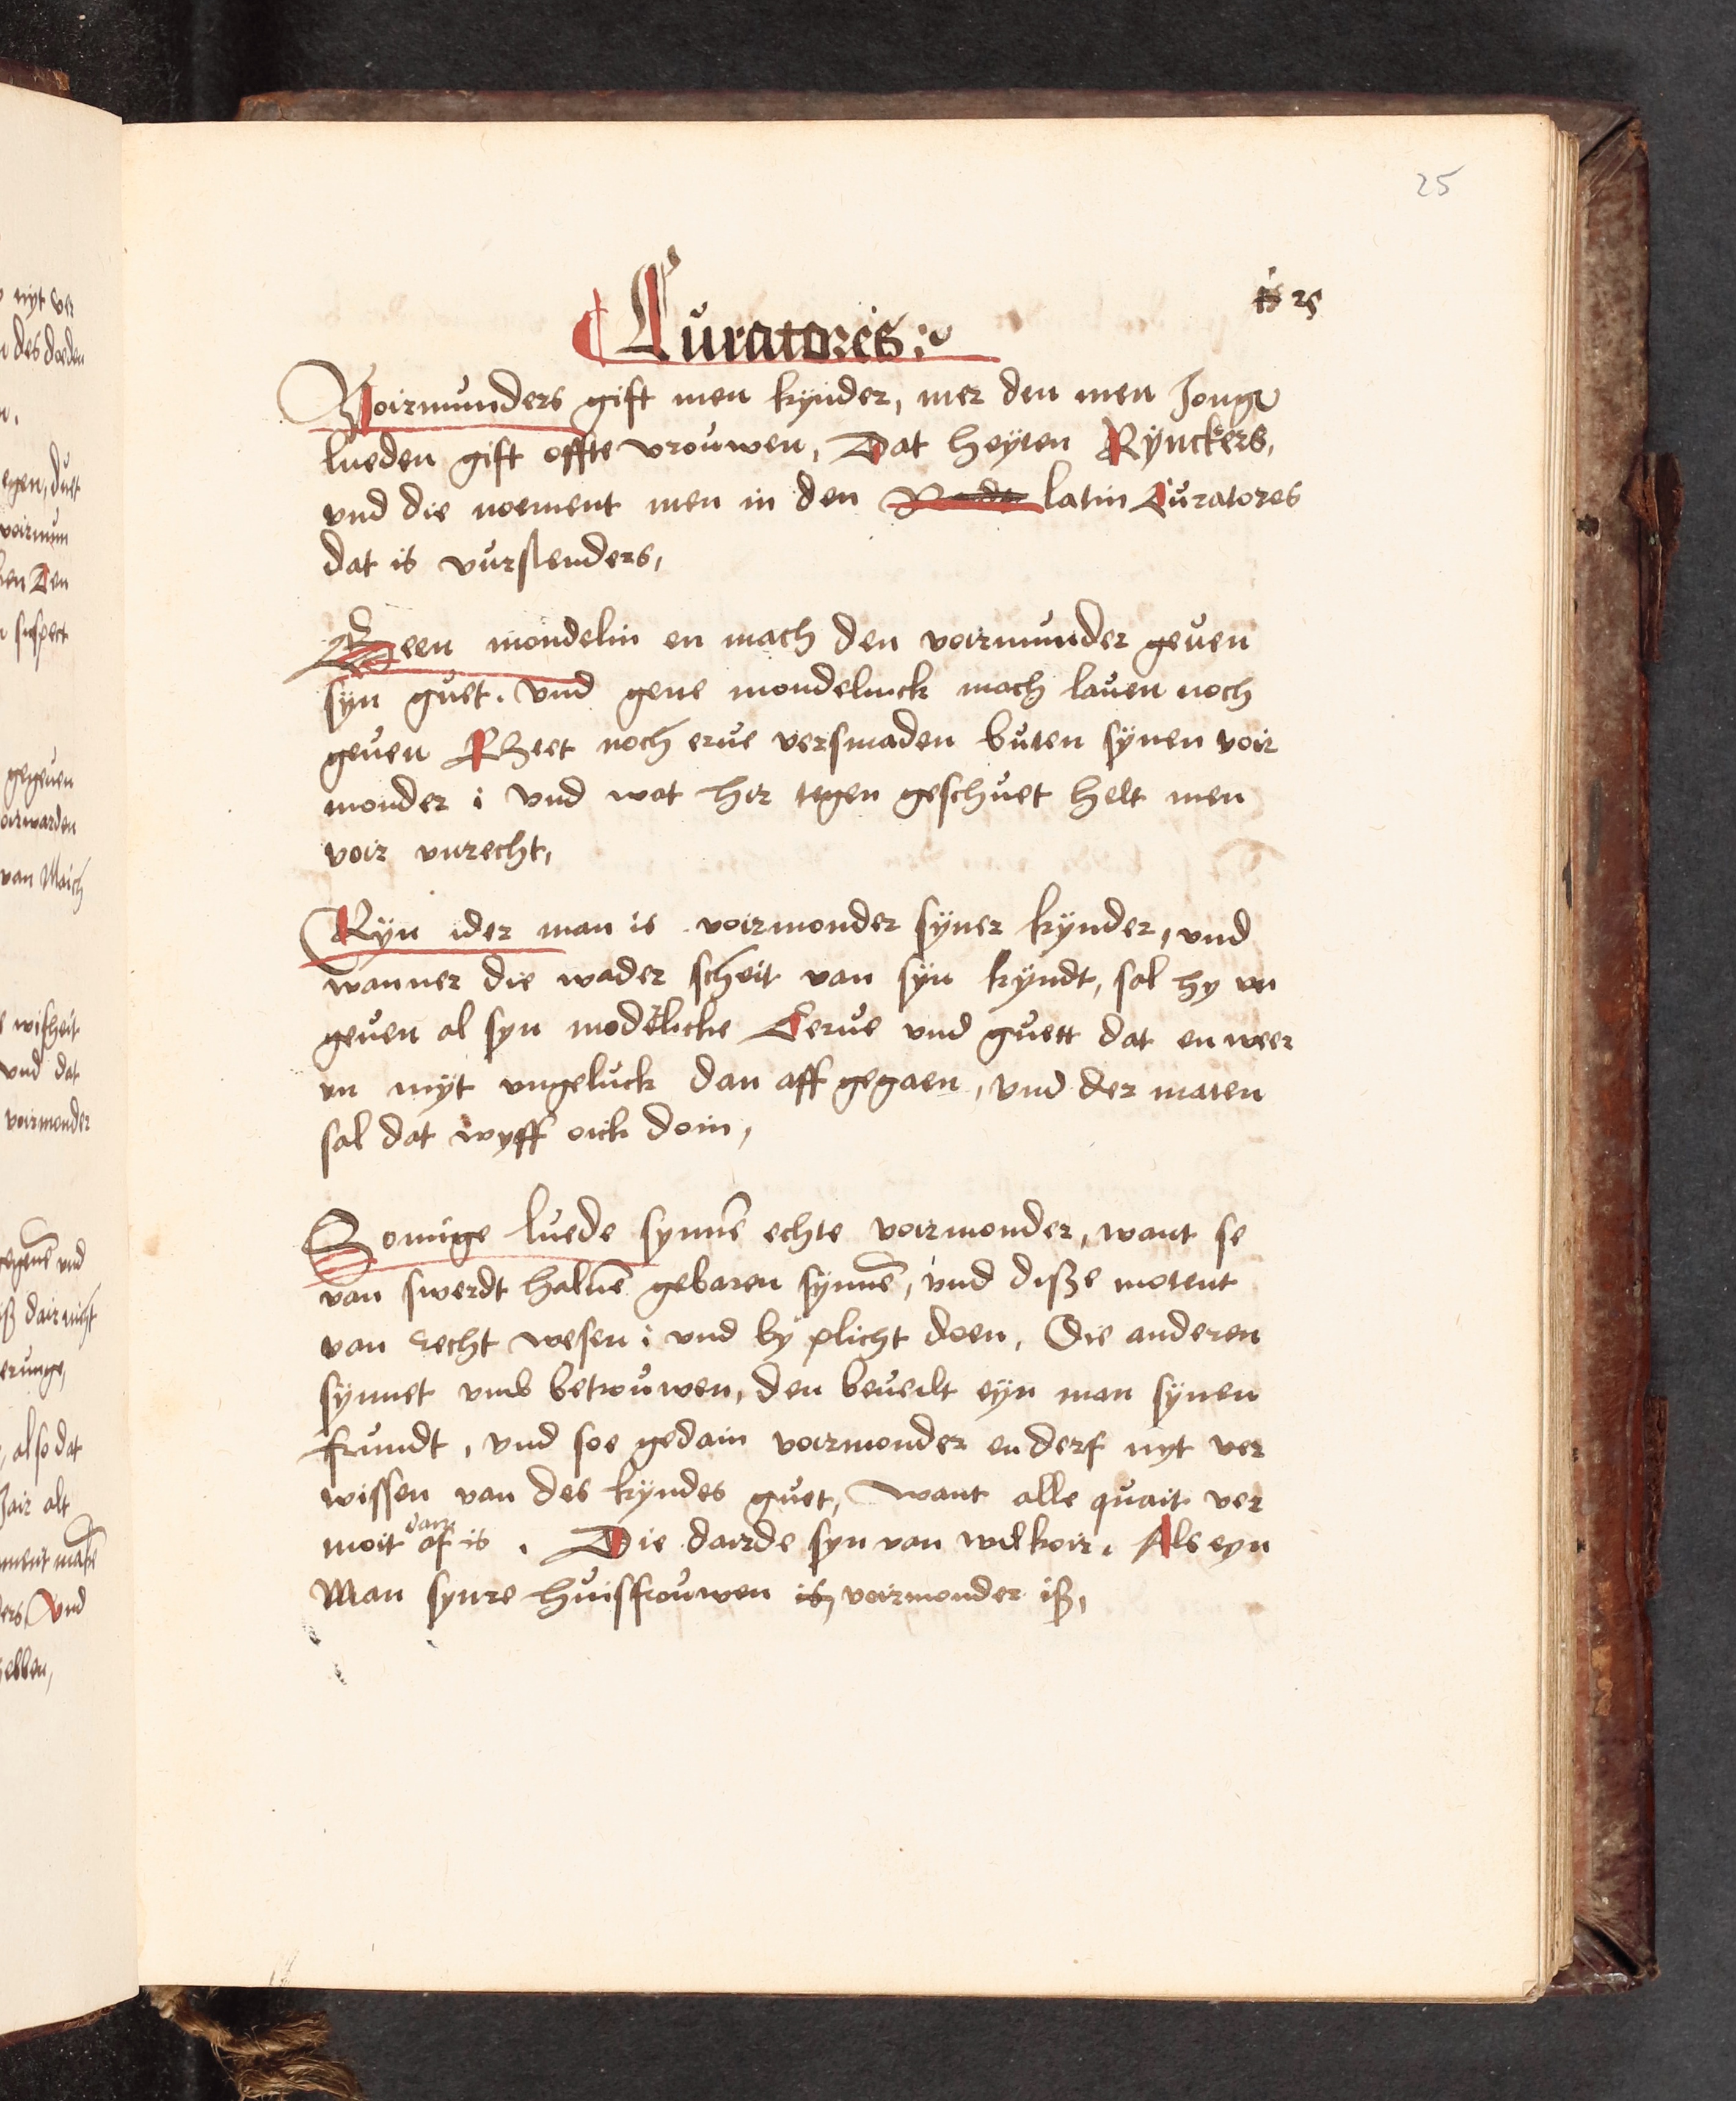 25
25
Curatores
Voirmunders gift men kynder, mer den men Jonge
lueden gift offte vrouwen, Dat heyten Rynckers,
vnd die noement men in den latin Curatores
dat is vurslenders,
Geen mondelin en mach den voirmunder geuen
syn guet. vnd gene mondelinck mach lauen noch
geuen noch erue versmaden buten synen voir
monder : vnd wat hir tegen geschuet helt men
voir vnrecht,
Eyn ider man is voirmonder syner kynder, vnd
wanner die vader scheit van syn kyndt, sal hy en
geuen al syn modelicke Eerue vnd guett dat en weer
en myt vngeluck dan aff gegaen, vnd der maten
sal dat wyff oick doin,
Somige luede synnē echte voirmonder, want se
van swerdt haluē gebaren synnē, vnd disse motent
van recht wesen : vnd by plicht doen, Die anderen
synnet vmb betrouwen, den beueilt eyn man synen
frundt, vnd soe gedain voirmonder en derf nyt ver
wissen van des kyndes guet, want alle quait ver
moit dair af is . Die dairde syn van wilkoir. Als eyn
Man synre huisfrouwen is voirmonder iß,
nyt ver
des doeden
egen, duet
voirmun
Den
suspect
gegeuen
van
wisheit
vnd dat
voirmonder
vnd
dair nicht
erunge,
also dat
Jair alt
vnd
ebben,